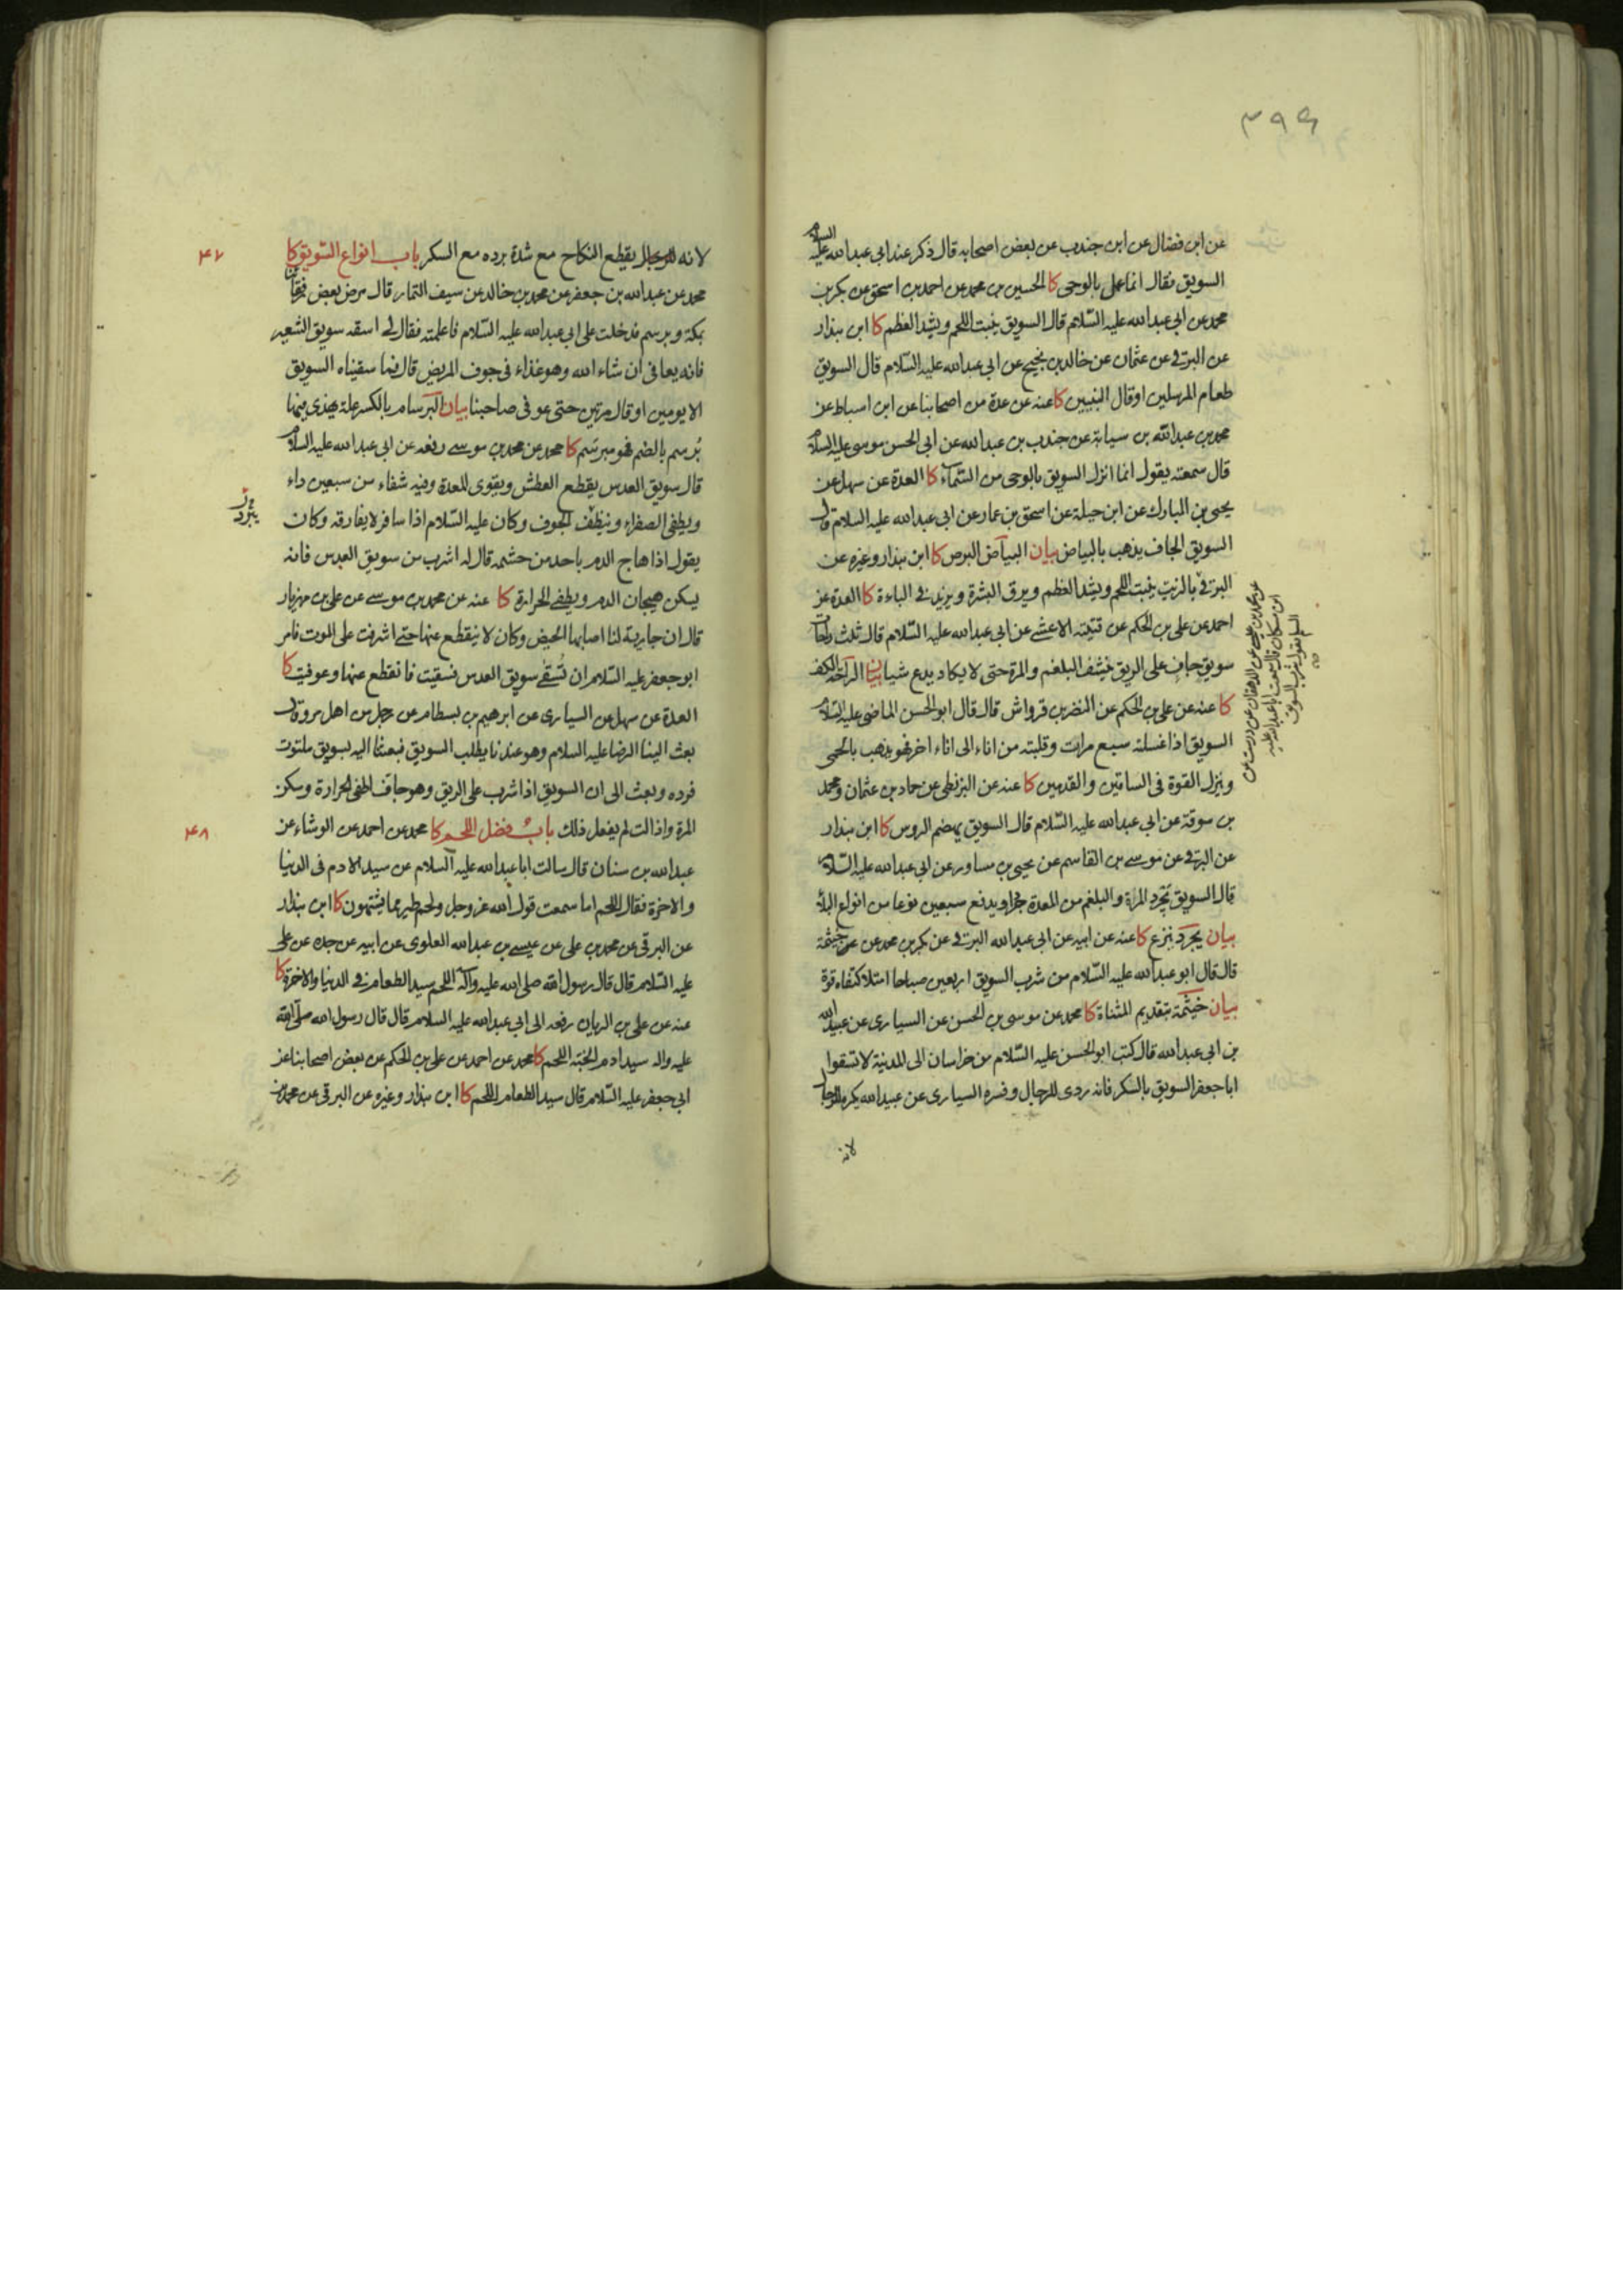 ٣٩٩
عن ابن فضال عن ابن جندب عن بعض اصحابه قال ذكر عند ابي عبد الله عليه السلام
السويق فقال انما عمل بالوحى كا الحسين بن محمد عن احمد بن اسحق عن بكر بن
محمد عن ابي عبد الله عليه السّلام قال السويق ينبت اللحم ويشد العظم كا ابن بندار
عن البرقى عن عثمان عن خالد بن نجيح عن ابي عبد الله عليه السّلام قال السويق
طعام المرسلين او قال النبيين كا عنه عن عدة من اصحابنا عن ابن اسباط عن
محمد بن عبد الله بن سيابة عن جندب بن عبد الله عن ابي الحسن موسى عليه السلام
قال سمعته يقول انما انزل السويق بالوحى من السّماء كا العدة عن سهل عن
يحيى بن المبارك عن ابن جبلة عن اسحق بن عمار عن ابي عبد الله عليه السلام قال
السويق الجاف يذهب بالبياض بيان البياض البرص كا ابن بندار وغيره عن
البرقى بالزيت ينبت اللحم ويشد العظم ويرق البشرة ويزيد فى الباءة كا العدة عن
احمد عن على بن الحكم عن قتيبة الاعشى عن ابي عبد الله عليه السّلام قال ثلث راحات
سويق جاف على الريق ينشف البلغم والمرة حتى لا يكاد يدع شيا بيان الراحة الكف
كا عنه عن على بن الحكم عن النضر بن قرواش قال قال ابو الحسن الماضى عليه السّلام
السويق اذا غسلته سبع مرات وقلبته من اناء الى اناء اخر فهو يذهب بالحمى
وينزل القوة فى الساقين والقدمين كا عنه عن البزنطى عن حماد بن عثمان ومحمد
بن سوقة عن ابي عبد الله عليه السّلام قال السويق يهضم الروس كا ابن بندار
عن البرقى عن موسى بن القاسم عن يحيى بن مساور عن ابي عبد الله عليه السّلام
قال السويق يجرد المرة والبلغم من المعدة جردا ويدفع سبعين نوعا من انواع البلاء
بيان يجرد ينزع كا عنه عن ابيه عن ابي عبد الله البرقى عن بكر بن محمد عن خيثمة
قال قال ابو عبد الله عليه السّلام من شرب السويق اربعين صباحا امتلا كتفاه قوة
بيان خيثمة بتقديم المثناة كا محمد عن موسى بن الحسن عن السيارى عن عبيد الله
بن ابي عبد الله قال كتب ابو الحسن عليه السّلام من خراسان الى المدينة لا تسقوا
ابا جعفر السويق بالسكر فانه ردى للرجال وفسره السيارى عن عبيد الله يكره للرجال
لانه
عن محمد بن عيسى عن الدهقان عن درست عن
ابن مسكان قال سمعت ابا عبد الله عليه
السلم يقول شرب السويق
لانه يقطع النكاح مع شدة برده مع السكر باب انواع السّويق كا
٤٧
محمد عن عبد الله بن جعفر عن محمد بن خالد عن سيف التمار قال مرض بعض رفقائنا
بمكة وبرسم فدخلت على ابي عبد الله عليه السّلام فاعلمته فقال لى اسقه سويق الشعير
فانه يعافى ان شاء الله وهو غذاء فى جوف المريض قال فما سقيناه السويق
الا يومين او قال مرتين حتى عوفى صاحبنا بيان البرسام بالكسر علة يهذى فيها
بُرسم بالضم فهو مبرسَم كا محمد عن محمد بن موسى رفعه عن ابي عبد الله عليه السلام
قال سويق العدس يقطع العطش ويقوى المعدة وفيه شفاء من سبعين داء
ويطفى الصفراء وينظف الجوف وكان عليه السّلام اذا سافر لا يفارقه وكان
يقول اذا هاج الدم باحد من حشمه قال له اشرب من سويق العدس فانه
يسكن هيجان الدم ويطفى الحرارة كا عنه عن محمد بن موسى عن على بن مهزيار
قال ان جارية لنا اصابها الحيض وكان لا ينقطع عنها حتى اشرفت على الموت فامر
ابو جعفر عليه السّلام ان تُسقى سويق العدس فسقيت فانقطع عنها وعوفيت كا
العدة عن سهل عن السيارى عن ابرهيم بن بسطام عن رجل من اهل مرو قال
بعث الينا الرضا عليه السلام وهو عندنا يطلب السويق فبعثنا اليه بسويق ملتوت
فرده وبعث الى ان السويق اذا شرب على الريق وهو جاف اطفى الحرارة وسكن
المرة واذا لت لم يفعل ذلك بابٌ فضل اللحم كا محمد عن احمد عن الوشاء عن
٤٨
عبد الله بن سنان قال سالت ابا عبد الله عليه السلام عن سيد الادم فى الدنيا
والاخرة فقال اللحم اما سمعت قول الله عز وجل ولحم طير مما يشتهون كا ابن بندار
عن البرقى عن محمد بن على عن عيسى بن عبد الله العلوى عن ابيه عن جده عن على
عليه السّلام قال قال رسول الله صلى الله عليه وآله اللحم سيد الطعام فى الدنيا والاخرة كا
عنه عن على بن الريان رفعه الى ابي عبد الله عليه السلام قال قال رسول الله صلى الله
عليه واله سيد ادم الجنة اللحم كا محمد عن احمد عن على بن الحكم عن بعض اصحابنا عن
ابي جعفر عليه السّلام قال سيد الطعام اللحم كا ابن بندار وغيره عن البرقى عن محمد بن